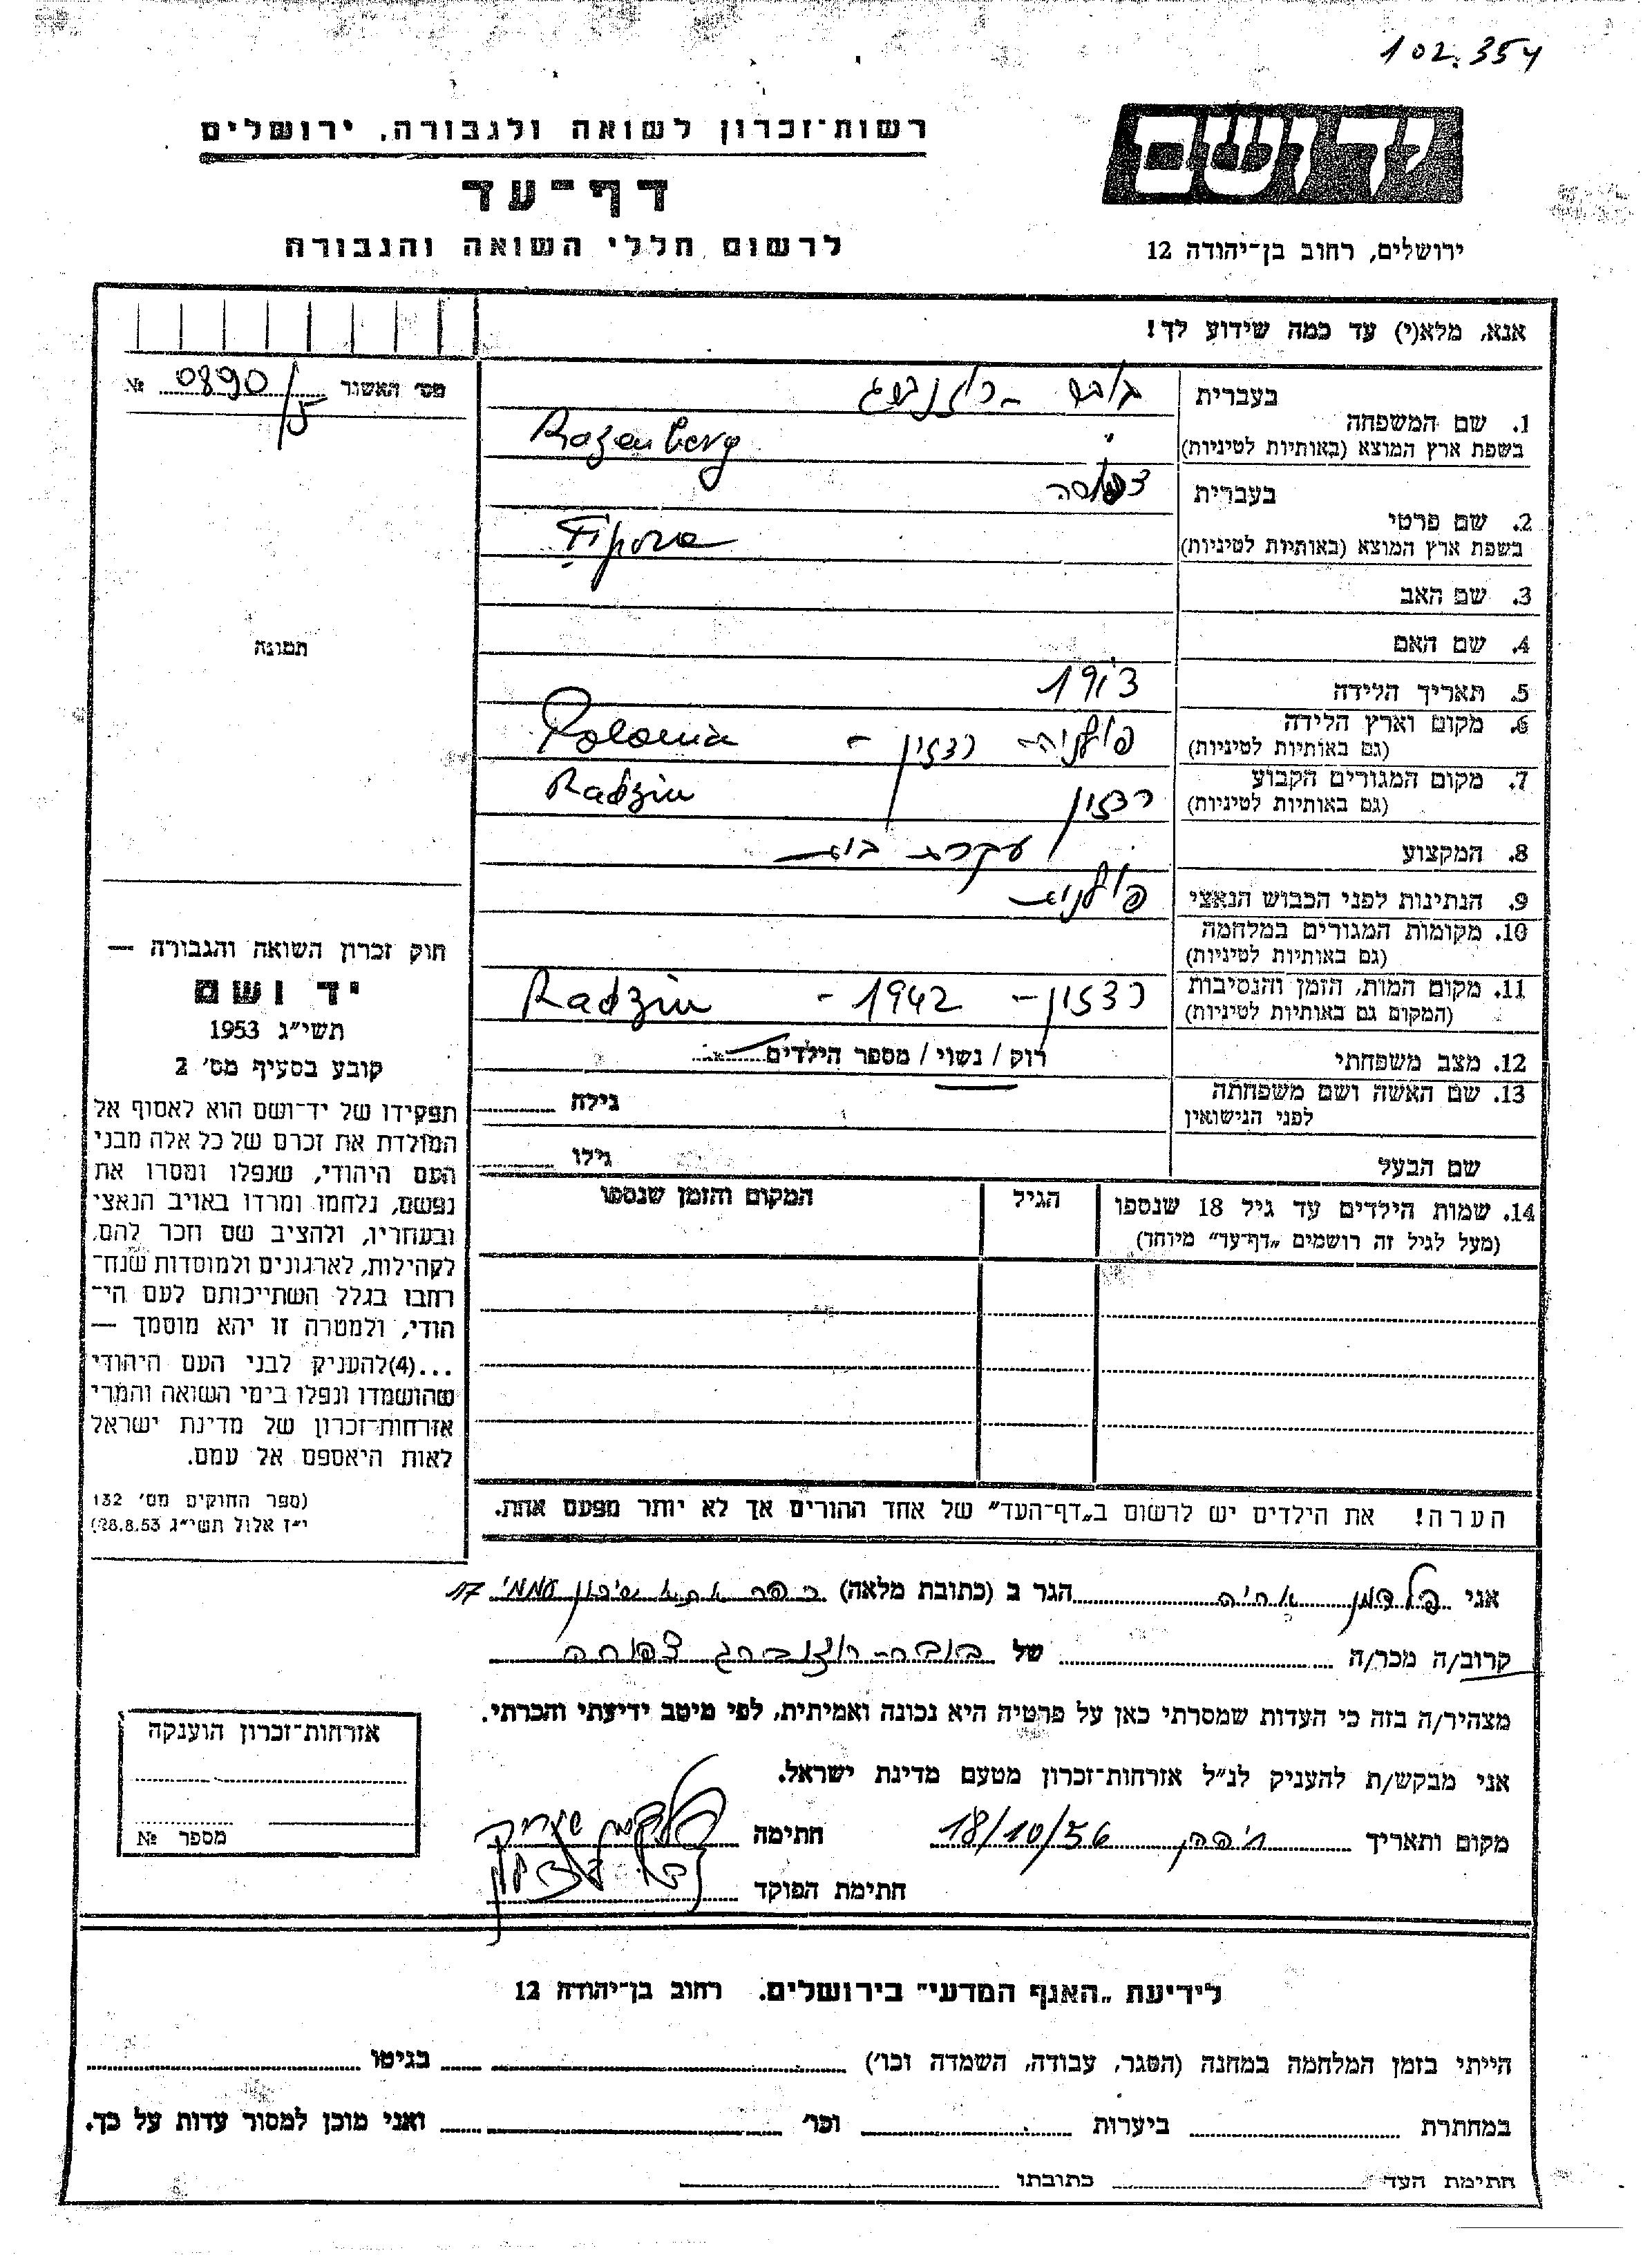 102.354
יד ושם
רשות־זכרון לשואה ולגבורה, ירושלים
דף־עד
לרשום חללי השואה והגבורה
ירושלים, רחוב בן־יהודה 12
אנא, מלא(י) עד כמה שידוע לך!
מס׳ האשור 0890/5 №
1. שם המשפחה
בעברית
בשפת ארץ המוצא (באותיות לטיניות) Rozenberg
2. שם פרטי
בעברית
בשפת ארץ המוצא (באותיות לטיניות) Fipora
3. שם האב
4. שם האם
5. תאריך הלידה
6. מקום וארץ הלידה פולניה - רדזין - Polonia
(גם באותיות לטיניות)
7. מקום המגורים הקבוע רדזין Radzin
(גם באותיות לטיניות)
8. המקצוע עקרת בית
9. הנתינות לפני הכבוש הנאצי פולנית
10. מקומות המגורים במלחמה
(גם באותיות לטיניות)
11. מקום המות, הזמן והנסיבות רדזין - 1942 - Radzin
(המקום גם באותיות לטיניות)
12. מצב משפחתי רוק / נשוי / מספר הילדים
13. שם האשה ושם משפחתה גילה
לפני הנישואין
שם הבעל גילו
14. שמות הילדים עד גיל 18 שנספו הגיל המקום והזמן שנספו
(מעל לגיל זה רושמים „דף־עד" מיוחד)
הערה! את הילדים יש לרשום ב„דף־העד" של אחד ההורים אך לא יותר מפעם אחת.
תמונה
חוק זכרון השואה והגבורה —
יד ושם
תשי״ג 1953
קובע בסעיף מס׳ 2
תפקידו של יד־ושם הוא לאסוף אל
המולדת את זכרם של כל אלה מבני
העם היהודי, שנפלו ומסרו את
נפשם, נלחמו ומרדו באויב הנאצי
ובעוזריו, ולהציב שם וזכר להם,
לקהילות, לארגונים ולמוסדות שנח־
רחבו בגלל השתייכותם לעם הי־
הודי, ולמטרה זו יהא מוסמך —
...(4)להעניק לבני העם היהודי
שהושמדו ונפלו בימי השואה והמרי
אזרחות־זכרון של מדינת ישראל
לאות היאספם אל עמם.
(ספר החוקים מס׳ 132
י״ז אלול תשי״ג 28.8.53)
אני פלדמן אריה הגר ב (כתובת מלאה) כפר אתא שיכון עממי 17
קרוב/ה מכר/ה של בובה־רוזנברג צפורה
מצהיר/ה בזה כי העדות שמסרתי כאן על פרטיה היא נכונה ואמיתית, לפי מיטב ידיעתי והכרתי.
אני מבקש/ת להעניק לנ״ל אזרחות־זכרון מטעם מדינת ישראל.
מקום ותאריך חיפה 18/10/56 חתימה
חתימת הפוקד
אזרחות־זכרון הוענקה
מספר №
לידיעת „האגף המדעי" בירושלים. רחוב בן־יהודה 12
הייתי בזמן המלחמה במחנה (הסגר, עבודה, השמדה וכו׳) בגיטו
במחתרת ביערות וכו׳ ואני מוכן למסור עדות על כך.
חתימת העד כתובתו